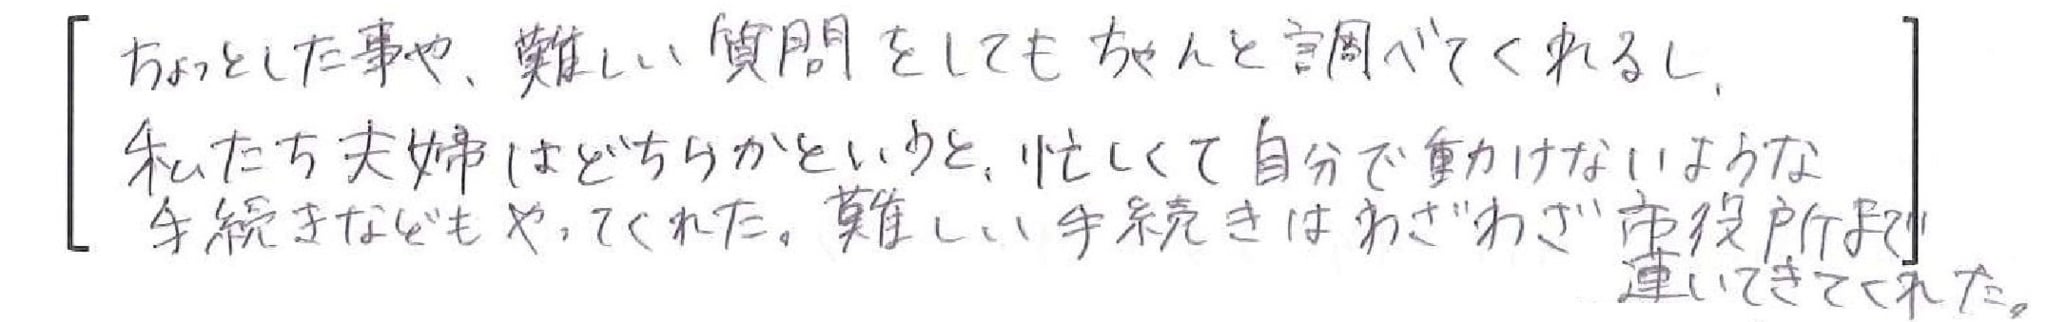 ちょっとした事や、難しい質問をしてもちゃんと調べてくれるし、
私たち夫婦はどちらかというと、忙しくて自分で動けないような
手続きなどもやってくれた。難しい手続きはわざわざ市役所まで
運いてきてくれた。